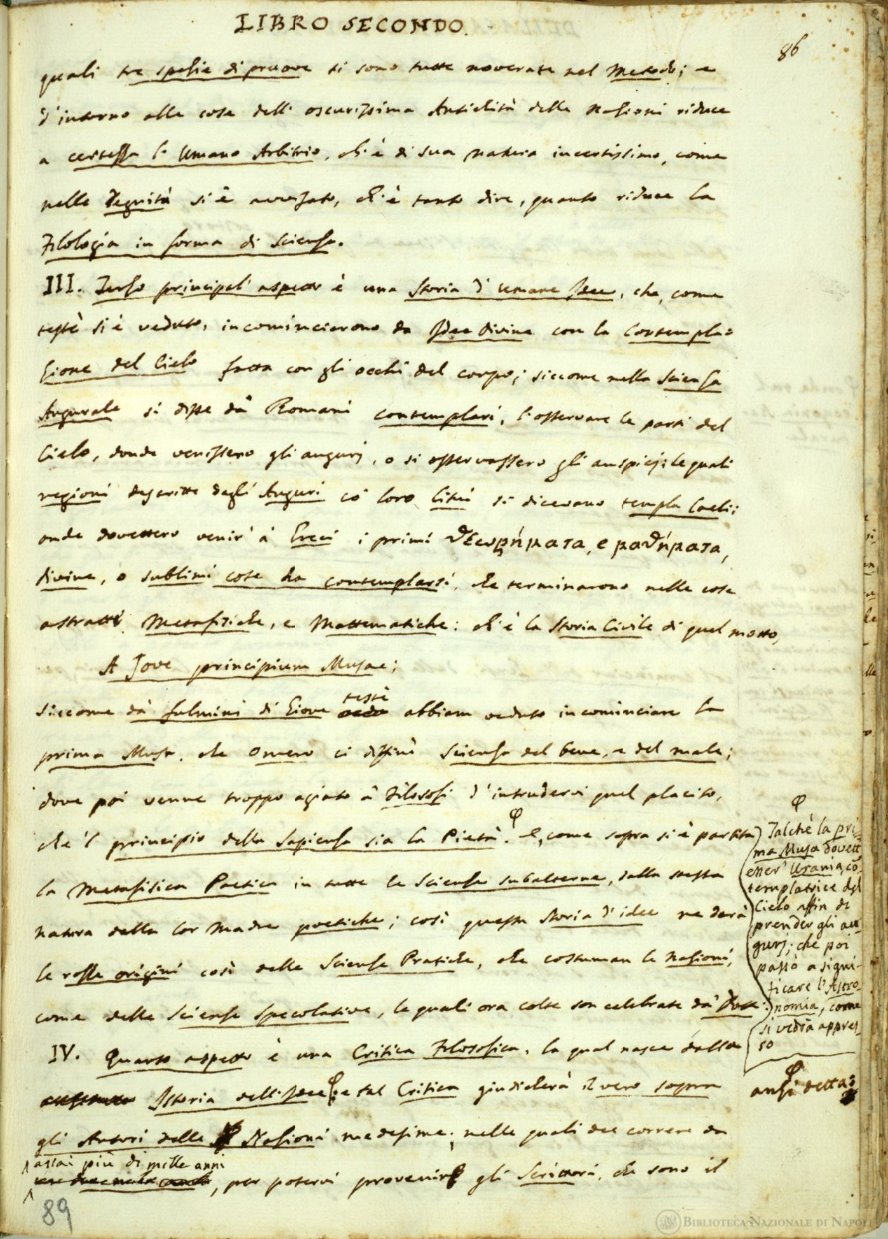 LIBRO SECONDO.
86
quali tre spezie di pruove si sono tutte noverate nel Metodo; e
d'intorno alle cose dell' oscurissima Antichità delle Nazioni riduce
a certezza l' Umano Arbitrio, ch'è di sua natura incertissimo, come
nelle Degnità si è avvisato, ch'è tanto dire, quanto riduce la
Filologia in forma di Scienza.
III. Terzo principal' aspetto è una Storia d' Umane Idee, che, come
testè si è veduto, incominciarono da Idee Divine con la Contempla=
zione del Cielo fatta con gli occhi del corpo; siccome nella Scienza
Augurale si disse da' Romani contemplari, l'osservare le parti del
Cielo, donde venissero gli augurj, o si osservassero gli auspicj; le quali
regioni descritte dagli Auguri co' loro litui si dicevano templa Coeli;
onde dovettero venir' a' Greci i primi θεωρήματα, e μαθήματα,
divine, o sublimi cose da contemplarsi, che terminarono nelle cose
astratte Metafisiche, e Mattematiche: ch'è la Storia Civile di quel motto,
A Jove principium Musae;
siccome da' fulmini di Giove testè abbiam veduto incominciare la
prima Musa, che Omero ci diffinì Scienza del bene, e del male;
dove poi venne troppo agiato a' Filosofi d'intrudervi quel placito,
che 'l principio della Sapienza sia la Pietà. φ E, come sopra si è partita
la Metafisica Poetica in tutte le Scienze subalterne, dalla stessa
natura della lor Madre poetiche; così questa Storia d'idee ne darà
le rozze origini così delle Scienze Pratiche, che costuman le Nazioni,
come delle Scienze Specolative, le quali ora colte son celebrate da' Dotti.
φ
Talchè la pri-
ma Musa dovett'
esser' Urania, con-
templatrice del
Cielo affin di
prender gli au-
gurj; che poi
passò a signi-
ficare l' Astro-
nomia, come
si vedrà appres-
so
IV. Quarto aspetto è una Critica Filosofica, la qual nasce dalla
Istoria dell' Idee φ e tal Critica giudicherà il vero sopra
φ
anzi detta:
gli Autori delle Nazioni medesime; nelle quali dee correre da
assai più di mille anni
, per potervi provenir gli Scrittori, che sono il
89
BIBLIOTECA NAZIONALE DI NAPOLI